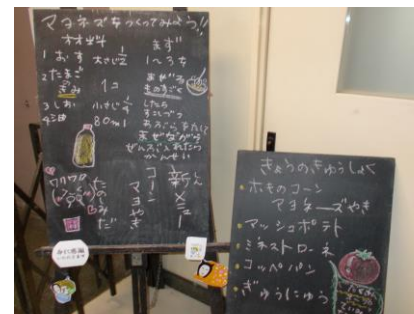 マヨネーズをつくってみよう!!
ざいりょう
1 おす 大さじ1/2
2 たまごのきみ 1コ
3 しお 小さじ1/4
4 油 80ml
まず
1〜3を
まぜる
ものすごく
したら
すこしづつ
あぶらをたして
まぜながら
ぜんぶ入れたら
かんせい
ワクワク
たのしみだ
コーンマヨやき
新メニュー
きょうのきゅうしょく
ホキのコーン
マヨネーズやき
マッシュポテト
ミネストローネ
コッペパン
ぎゅうにゅう